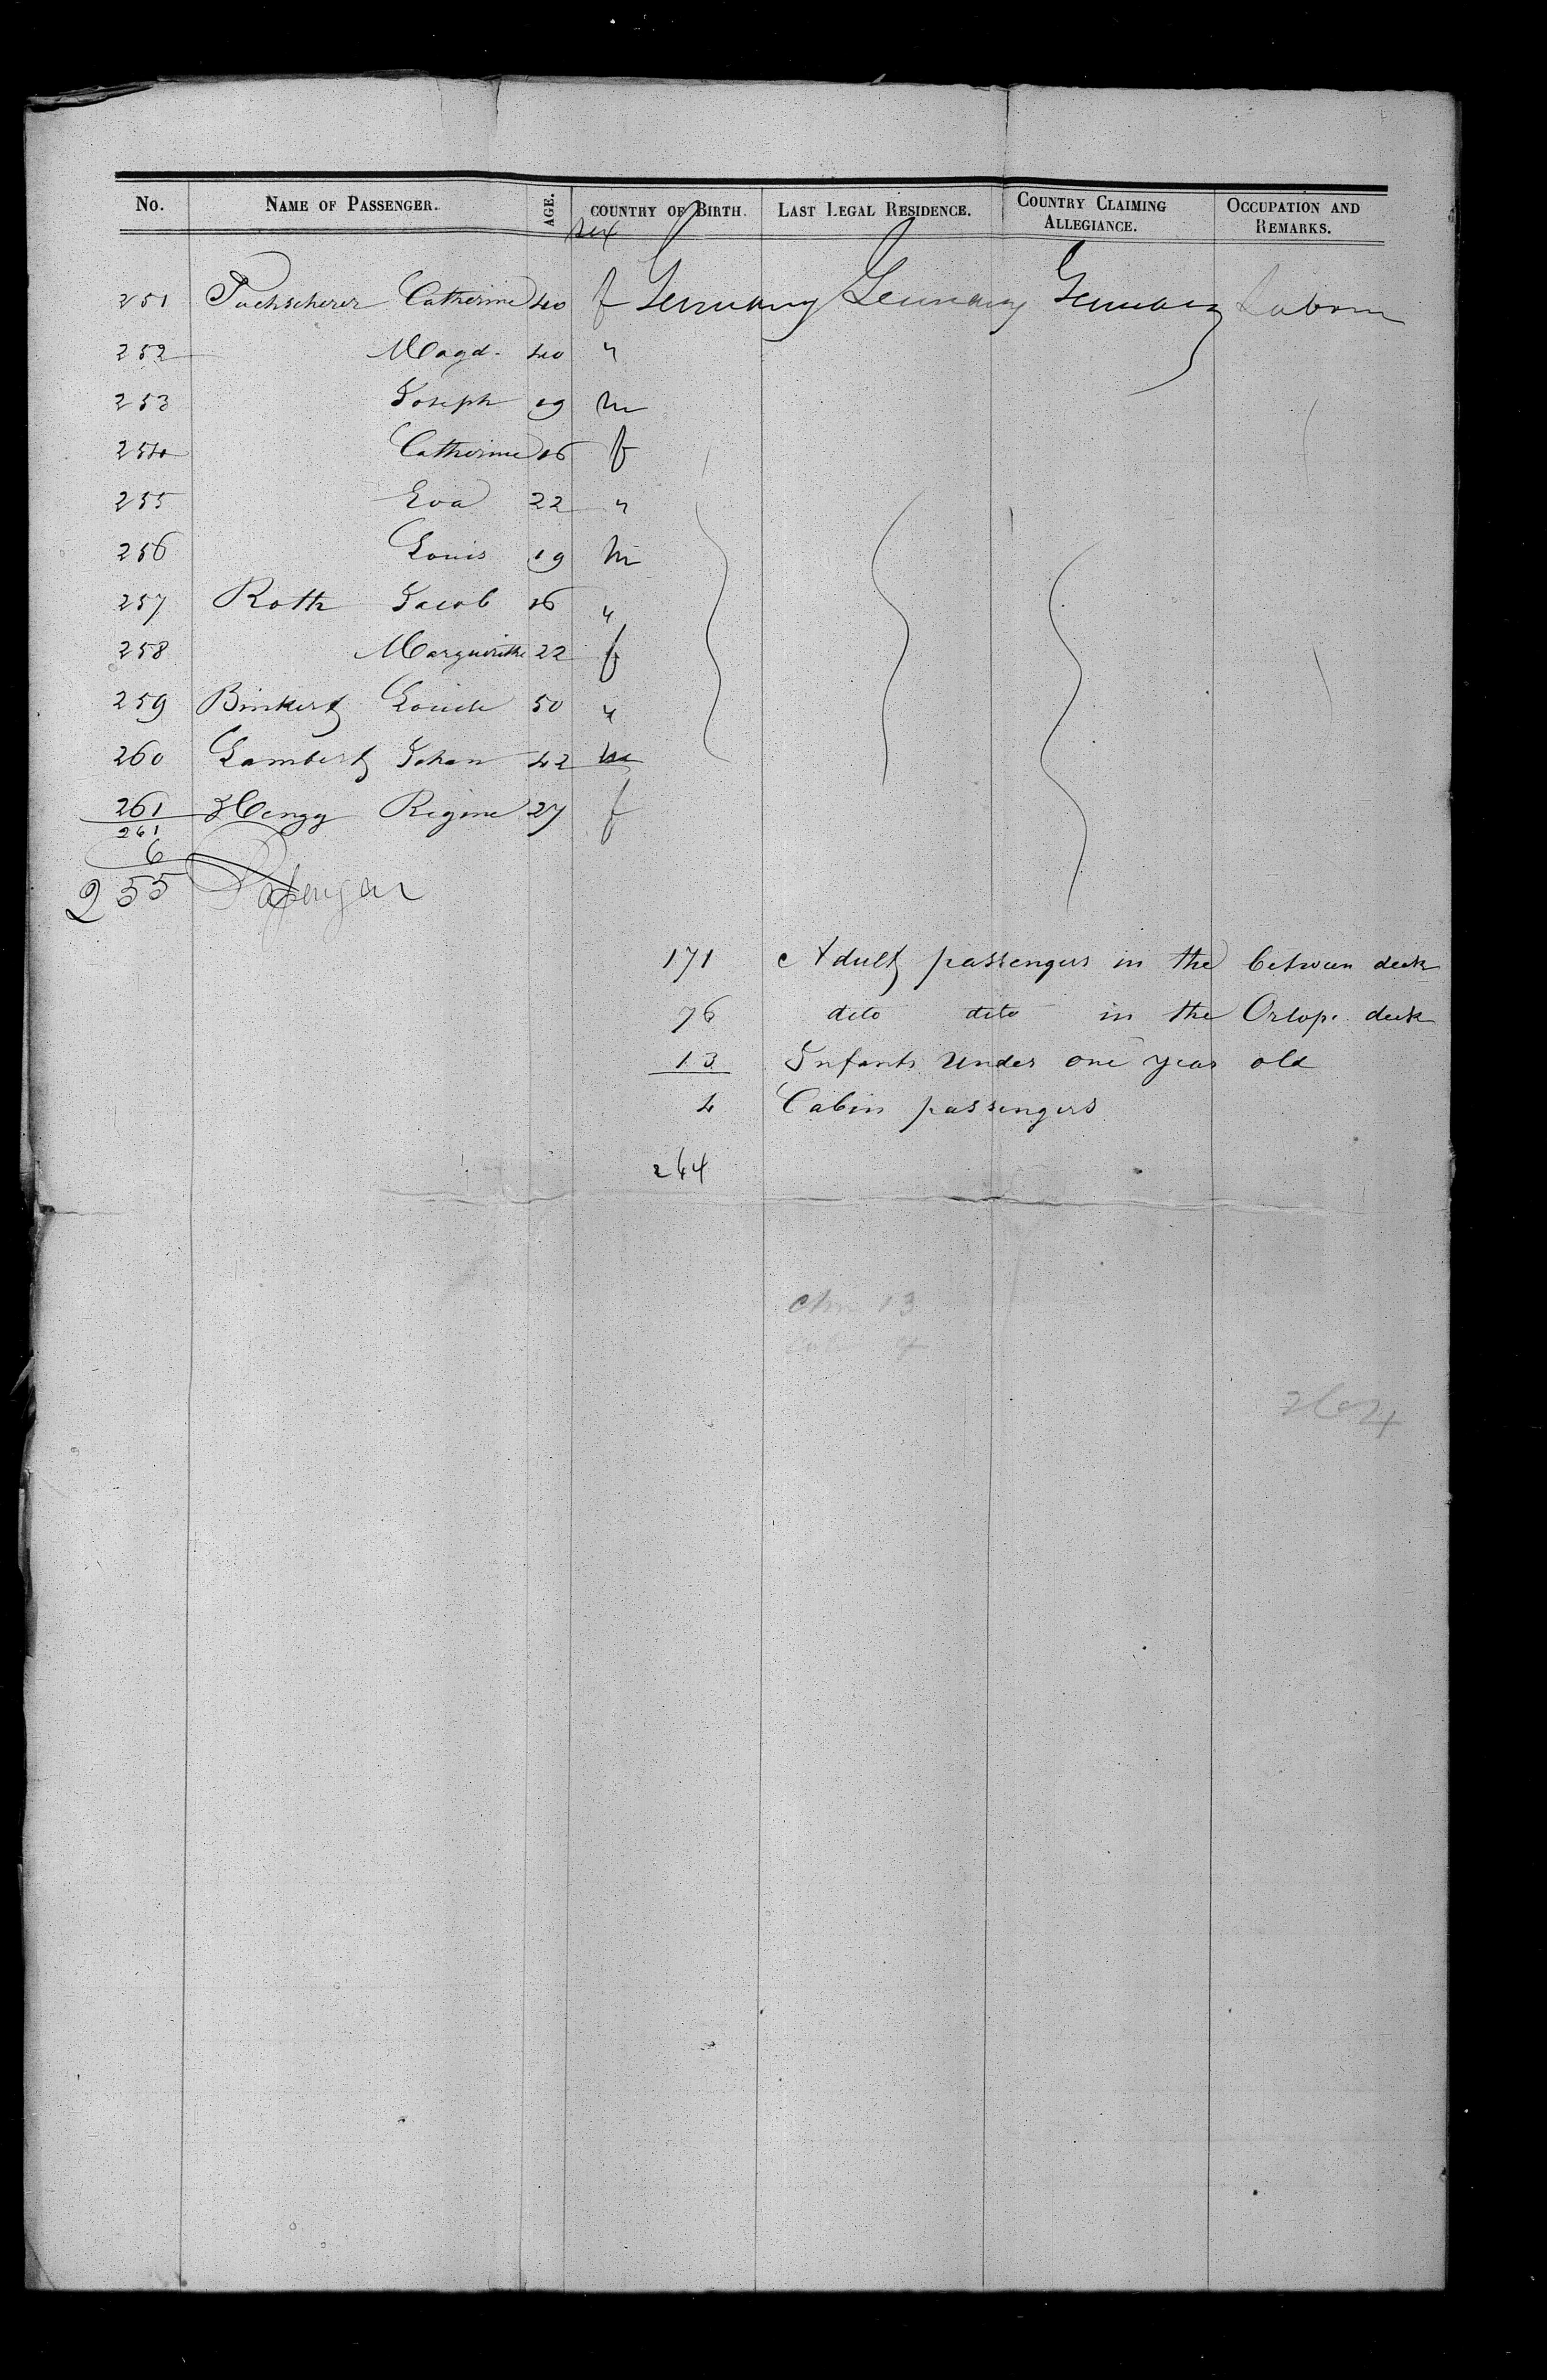 No. NAME OF PASSENGER. AGE. COUNTRY OF BIRTH. LAST LEGAL RESIDENCE. COUNTRY CLAIMING ALLEGIANCE. OCCUPATION AND REMARKS.
sex
251 Catherine 40 f Germany Germany Germany Labour
252 Magd. 40 "
253 Joseph 19 m
254 Catherine 16 f
255 Eva 22 "
256 Louis 19 m
257 Roth Jacob 16 "
258 22 f
259 Binkert Louise 50 "
260 Lambert Johan 42 m
261 Regine 27 f
261
6
255
171 Adult passengers in the between deck
76 dito dito in the Orlop. deck
13 Infants under one year old
4 Cabin passengers
264
13
264